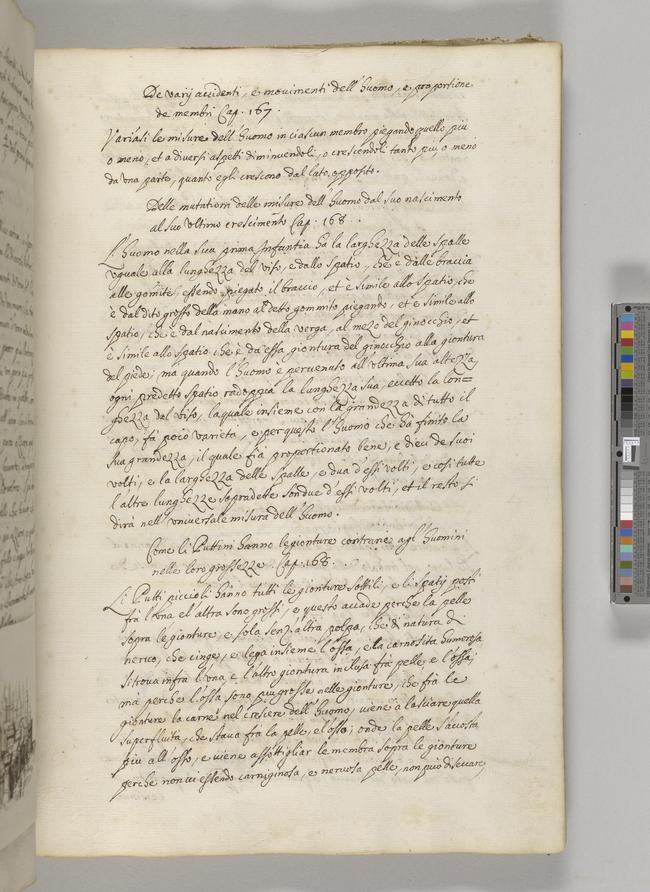 De varij accidenti, e movimenti dell'huomo, e proportione
de membri Cap. 167.
Variasi le misure dell'huomo in ciascun membro piegando quello più
o meno, et a diversi aspetti diminuendoli, o crescendoli tanto più, o meno
da una parte, quanto egli crescono dal lato opposito.
Delle mutationi delle misure dell'huomo dal suo nascimento
al suo ultimo crescimento Cap. 168.
L'huomo nella sua prima Infantia ha la larghezza delle spalle
uguale alla lunghezza del viso, e dallo spatio, che è dalle braccia
alle gomite, essendo piegato il braccio, et è simile allo spatio, che
è dal dito grosso della mano al detto gommito piegando, et è simile allo
spatio, che è dal nascimento della verga, al mezo del ginocchio, et
è simile allo spatio che è da essa giontura del ginocchio alla giontura
del piede; ma quando l'huomo è pervenuto all'ultima sua altezza,
ogni predetto spatio radoppia la lunghezza sua, eccetto la lon=
ghezza dal viso, laquale insieme con la grandezza di tutto il
capo, fà poco varietà, e per questo l'huomo che hà finito la
sua grandezza, il quale fia proportionato bene, è dieci de suoi
volti, e la larghezza delle spalle, e dua d'essi volti, e così tutte
l'altre lunghezze sopradette son due d'essi volti, et il resto si
dirà nell'universale misura dell'huomo.
Come li Puttini hanno le gionture contrarie agl'huomini
nelle loro grossezze. Cap. 168.
Li Putti piccioli hanno tutti le gionture sottili, e li spatij posti
frà l'una el altra sono grossi, e questo accade perche la pelle
sopra le gionture, e sola senz'altra polpa, che di natura di
nervo, che cinge, e lega insieme l'ossa, e la carnosità humorosa
si trova infra l'una e l'altra giontura inclusa frà pelle, e l'ossa;
mà perche l'ossa sono più grosse nelle gionture, che frà le
gionture la carne nel crescere dell'huomo, viene à lasciare quella
superfluità, che stava frà la pelle, el'osso; onde la pelle s'accosta
più all'osso, e viene assottigliar le membra sopra le gionture
perche non vi essendo carniginosa, e nervosa pelle, non può diseccare,